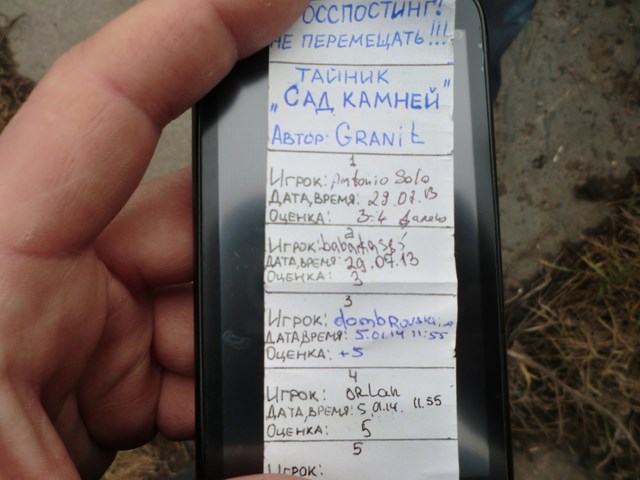 ОССПОСТИНГ!
НЕ ПЕРЕМЕЩАТЬ!!!
ТАЙНИК
„САД КАМНЕЙ"
АВТОР: GRANIt
1
ИГРОК: Antonio Solo
ДАТА,ВРЕМЯ: 29.07.13
ОЦЕНКА: 3.4 далеко
2
ИГРОК:
ДАТА,ВРЕМЯ: 29.07.13
ОЦЕНКА: 3
3
ИГРОК: dombRovskii
ДАТА,ВРЕМЯ: 5.01.14 11:55
ОЦЕНКА: +5
4
ИГРОК: ORLan
ДАТА,ВРЕМЯ: 5.01.14. 11.55
ОЦЕНКА: 5
5
ИГРОК: